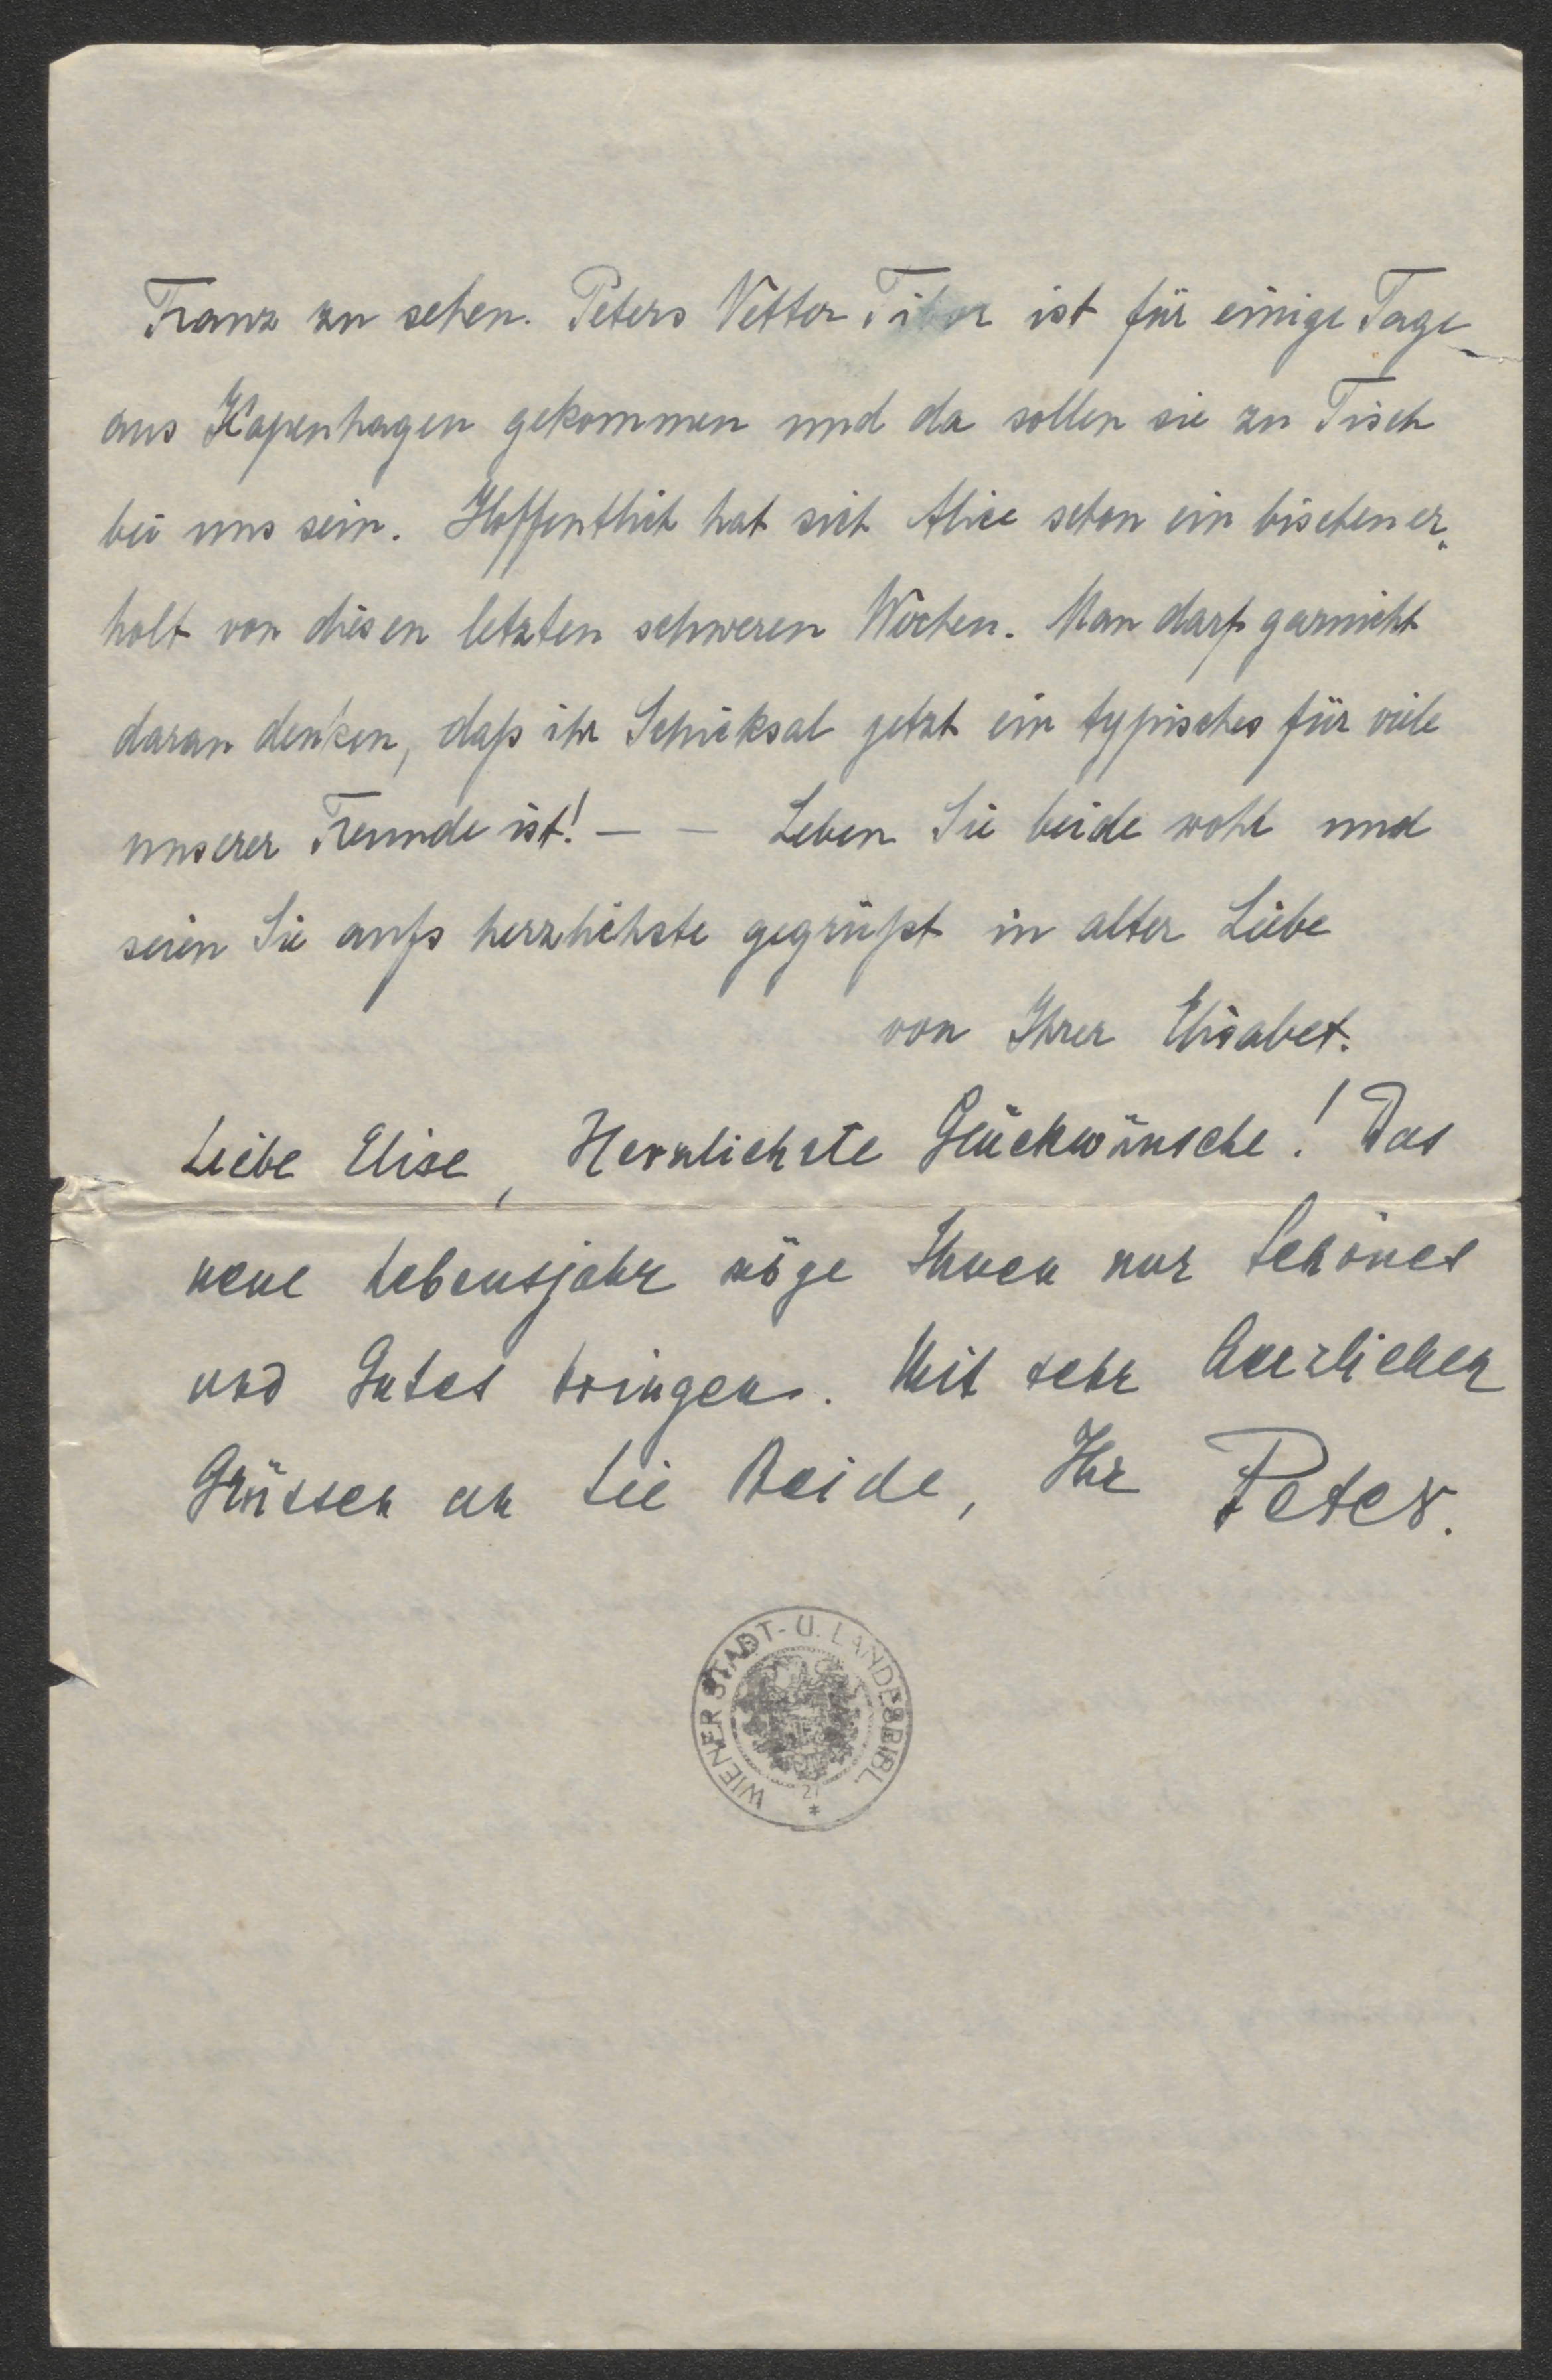 Franz zu sehen. Peters Vetter Tibor ist für einige Tage
aus Kopenhagen gekommen und da sollen sie zu Tisch
bei uns sein. Hoffentlich hat sich Alice schon ein bischen er-
holt von diesen letzten schweren Wochen. Man darf garnicht
daran denken, daß ihr Schicksal jetzt ein typisches für viele
unserer Freunde ist! – – Leben Sie beide wohl und
seien Sie aufs herzlichste gegrüßt in alter Liebe
von Ihrer Elisabet.
Liebe Elise, Herzlichste Glückwünsche! Das
neue Lebensjahr möge Ihnen nur Schönes
und Gutes bringen. Mit sehr herzlichen
Grüssen an Sie Beide, Ihr Peter.
WIENER STADT- U. LANDESBIBL.
27
*